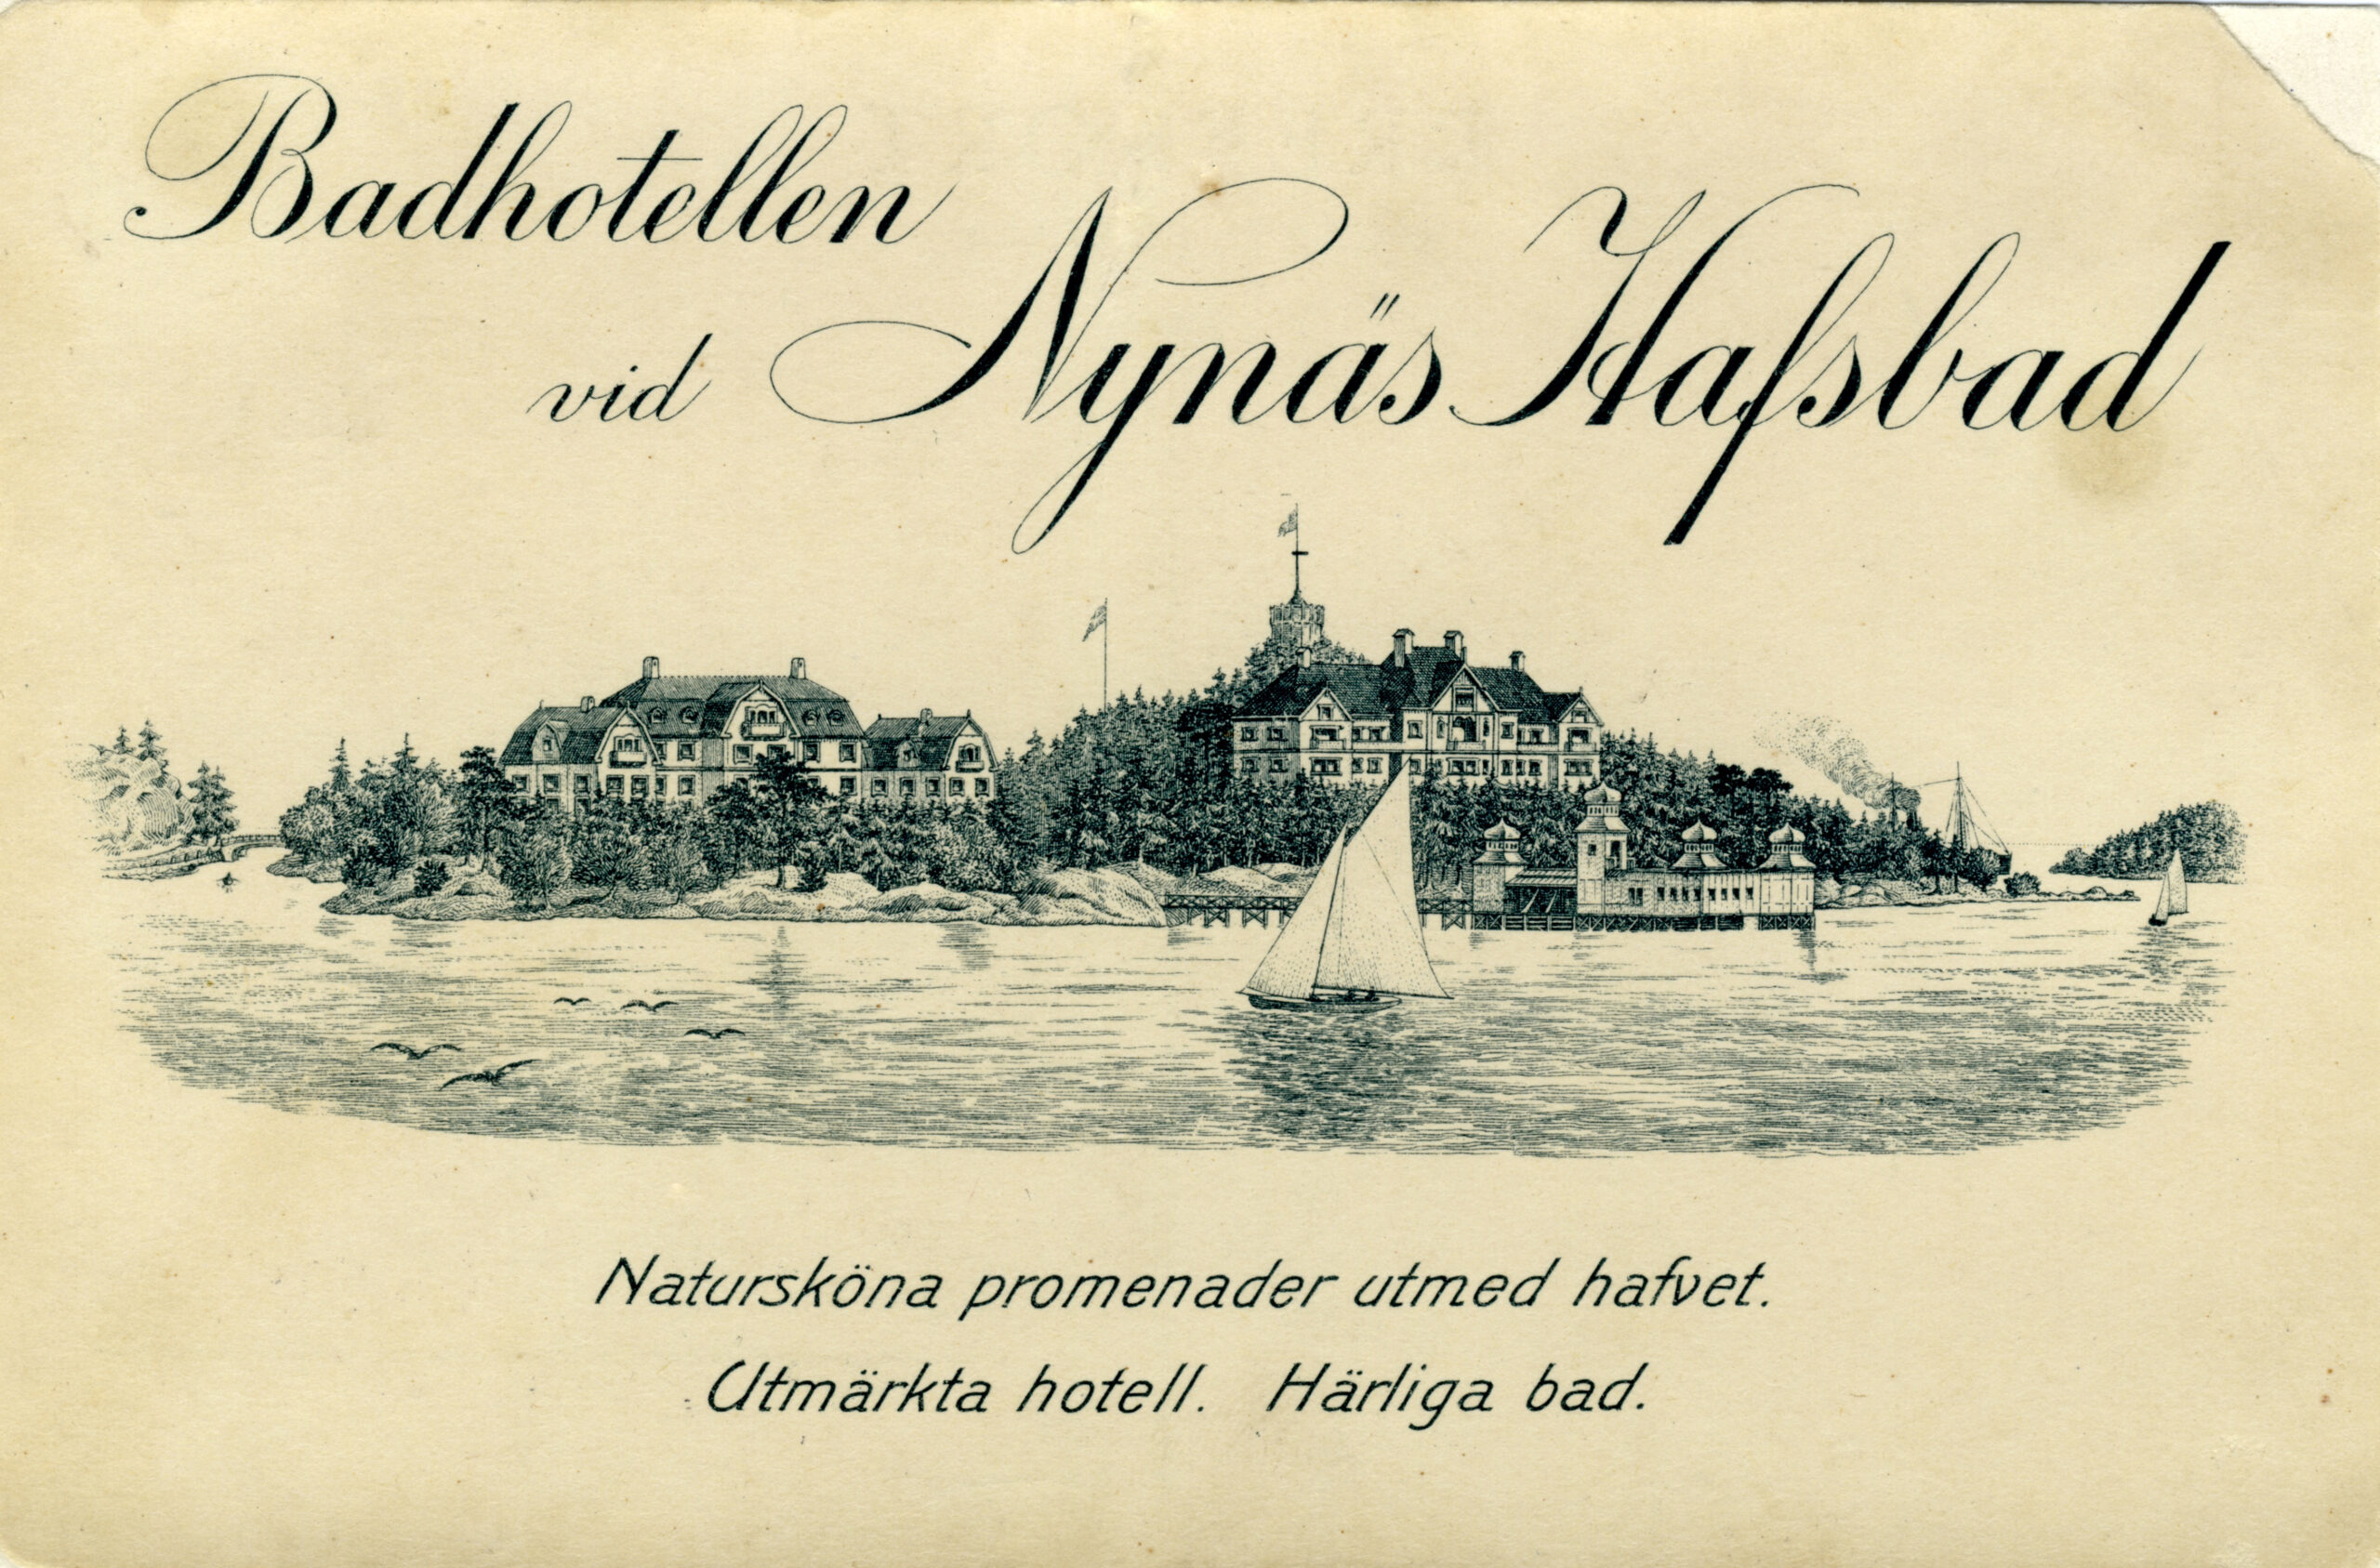 Badhotellen
vid Nynäs Hafsbad
Naturskӧna promenader utmed hafvet.
Utmärkta hotell. Härliga bad.